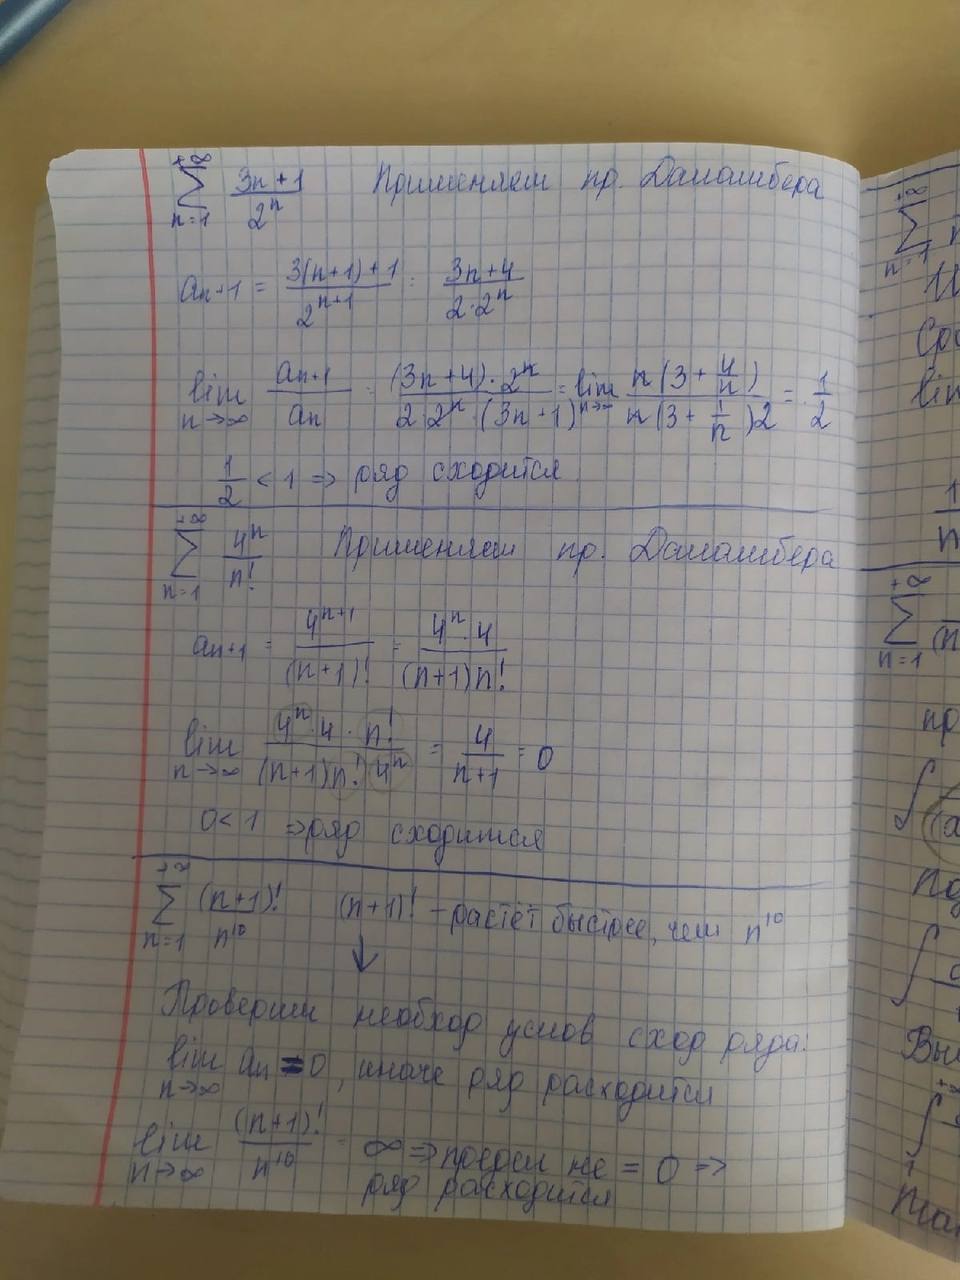 ∑_{n=1}^{+∞} (3n+1)/2^n Применяем пр. Даламбера
a_{n+1} = (3(n+1)+1)/2^{n+1} = (3n+4)/(2·2^n)
lim_{n→∞} a_{n+1}/a_n = ((3n+4)·2^n)/(2·2^n·(3n+1)) = lim_{n→∞} (n(3+4/n))/(n(3+1/n)2) = 1/2
1/2 < 1 ⇒ ряд сходится
∑_{n=1}^{+∞} 4^n/n! Применяем пр. Даламбера
a_{n+1} = 4^{n+1}/(n+1)! = (4^n·4)/((n+1)n!)
lim_{n→∞} (4^n·4·n!)/((n+1)n! 4^n) = 4/(n+1) = 0
0 < 1 ⇒ ряд сходится
∑_{n=1}^{+∞} (n+1)!/n^{10} (n+1)! – растёт быстрее, чем n^{10}
↓
Проверим необход услов сход ряда:
lim_{n→∞} a_n = 0, иначе ряд расходится
lim_{n→∞} (n+1)!/n^{10} = ∞ ⇒ предел не = 0 ⇒
ряд расходится
∑_{n=1}^{+∞}
lim
1/n
∑_{n=1}^{+∞}
пр
∫
∫
∫